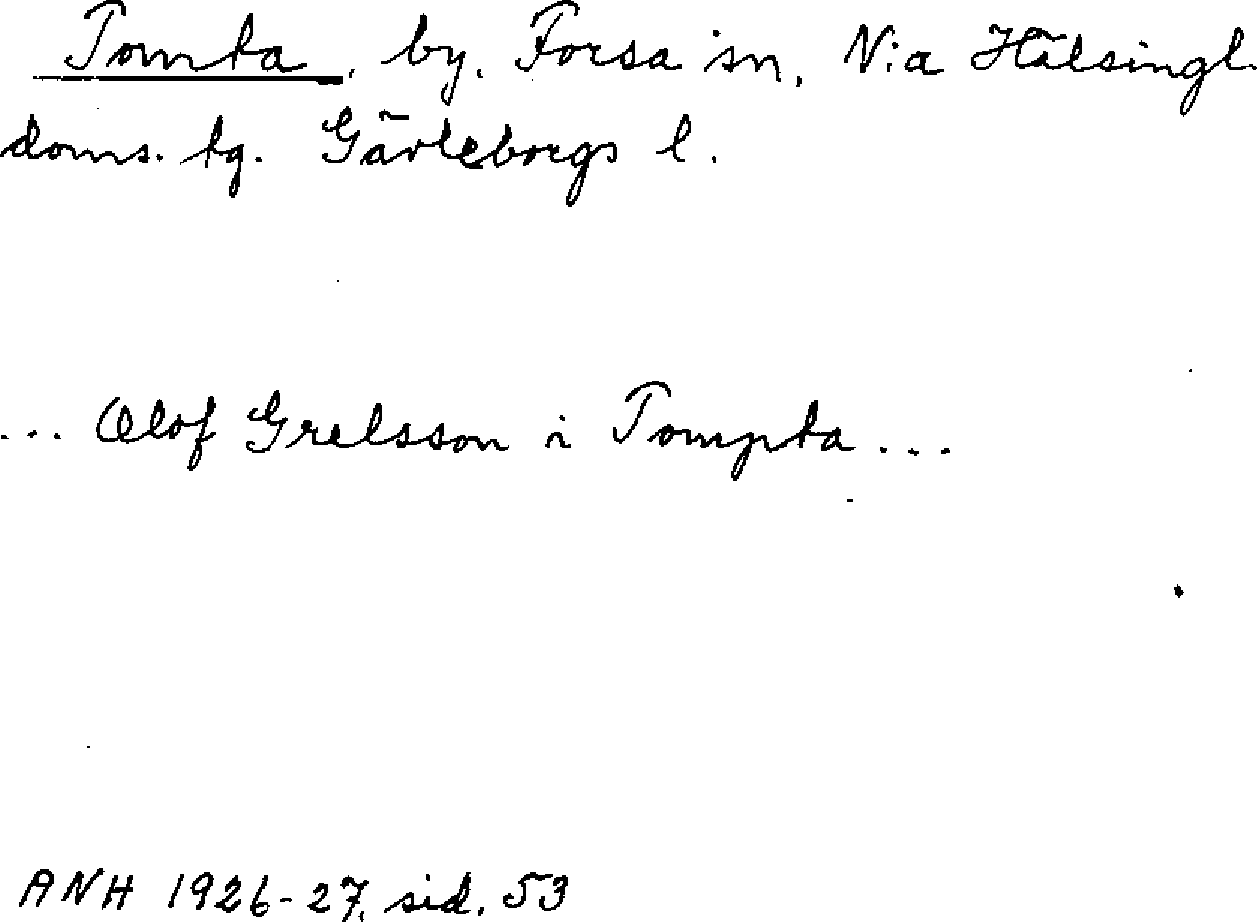 Tomta, by, Forsa sn, N:a Hälsingl.
doms. tg. Gävleborgs l.
... Olof Grelsson i Tompta ...
ANH 1926-27, sid. 53